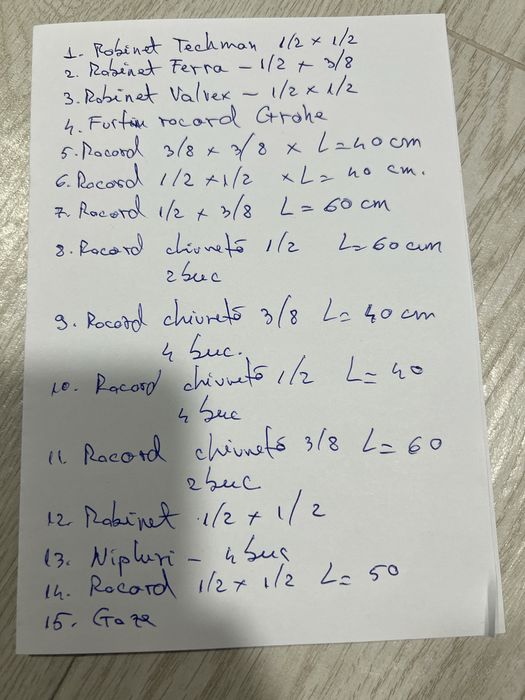 1. Robinet Techman 1/2 x 1/2
2. Robinet Ferra - 1/2 x 3/8
3. Robinet Valvex - 1/2 x 1/2
4. Furtun racord Grohe
5. Racord 3/8 x 3/8 x L=40 cm
6. Racord 1/2 x 1/2 x L= 40 cm.
7. Racord 1/2 x 3/8 L= 60 cm
8. Racord chiuvetă 1/2 L=60 cm
2 buc
9. Racord chiuvetă 3/8 L= 40 cm
4 buc.
10. Racord chiuvetă 1/2 L= 40
4 buc
11. Racord chiuvetă 3/8 L= 60
2 buc
12. Robinet 1/2 x 1/2
13. Nipluri - 4 buc
14. Racord 1/2 x 1/2 L= 50
15. Gaze